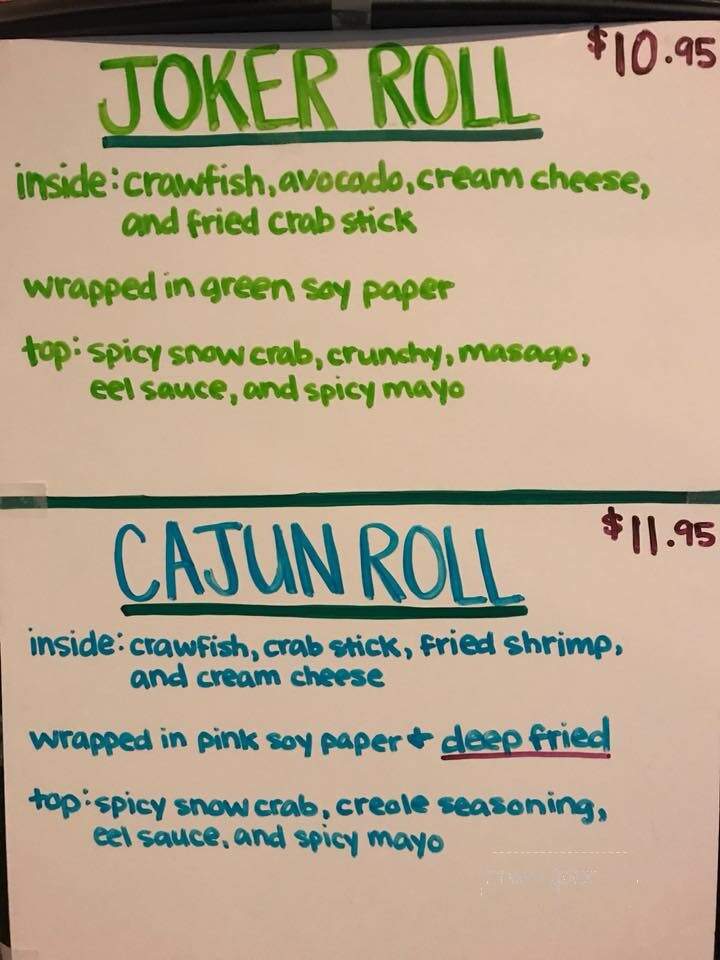 JOKER ROLL $10.95
inside: crawfish, avocado, cream cheese,
and fried crab stick
wrapped in green soy paper
top: spicy snow crab, crunchy, masago,
eel sauce, and spicy mayo
CAJUN ROLL $11.95
inside: crawfish, crab stick, fried shrimp,
and cream cheese
wrapped in pink soy paper + deep fried
top: spicy snow crab, creole seasoning,
eel sauce, and spicy mayo